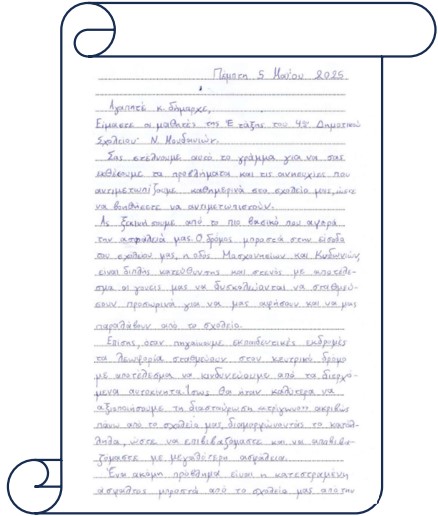 Πέμπτη 5 Μαΐου 2025
Αγαπητέ κ. δήμαρχε,
Είμαστε οι μαθητές της Έ τάξης του 4ου Δημοτικού
Σχολείου Ν. Μουδανιών.
Σας στέλνουμε αυτό το γράμμα για να σας
εκθέσουμε τα προβλήματα και τις ανησυχίες που
αντιμετωπίζουμε καθημερινά στο σχολείο μας, ώστε
να βοηθήσετε να αντιμετωπιστούν.
Ας ξεκινήσουμε από το πιο βασικό που αφορά
την ασφάλειά μας. Ο δρόμος μπροστά στην είσοδο
του σχολείου μας, η οδός Μοσχονησίων και Κυδωνιών,
είναι διπλής κατεύθυνσης και στενός με αποτέλε-
σμα οι γονείς μας να δυσκολεύονται να σταθμεύ-
σουν προσωρινά για να μας αφήσουν και να μας
παραλάβουν από το σχολείο.
Επίσης, όταν πηγαίνουμε εκπαιδευτικές εκδρομές
τα λεωφορεία σταθμεύουν στον κεντρικό δρόμο
με αποτέλεσμα να κινδυνεύουμε από τα διερχό-
μενα αυτοκίνητα. Ίσως θα ήταν καλύτερα να
αξιοποιήσουμε τη διασταύρωση ακριβώς
πάνω από το σχολείο μας, διαμορφώνοντάς τη κατάλ-
ληλα, ώστε να επιβιβαζόμαστε και να αποβιβα-
ζόμαστε με μεγαλύτερη ασφάλεια.
Ένα ακόμη πρόβλημα είναι η κατεστραμένη
άσφαλτος μπροστά από το σχολείο μας από την